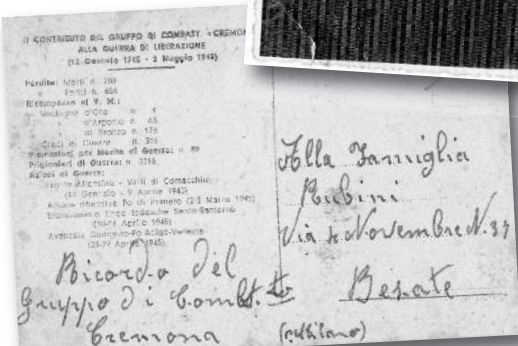 IL CONTRIBUTO DEL GRUPPO DI COMBATT. «CREMON
ALLA GUERRA DI LIBERAZIONE
(12 Gennaio 1945 - 2 Maggio 1945)
Perdite: Morti n.
Feriti n. 605
Ricompense al V. M.:
Medaglie d'Oro n. 4
d'Argento n.
di Bronzo n. 176
Croci di Guerra n.
Promozioni per Merito di Guerra: n.
Prigionieri di Guerra: n. 3216
Azioni di Guerra:
Fronte Alfonsine - Valli di Comacchio
(12 Gennaio - 9 Aprile 1945)
Azione offensiva Po di Primaro (2-3 Marzo 1945)
Sfondamento linee tedesche Senio-Santerno
(10-14 Aprile 1945)
Avanzata Po Adige-Venezia
Aprile 1945)
Ricordo del
Gruppo di Combt.to
Cremona
Alla Famiglia
Rubini
Via 4 Novembre N. 37
Besate
(Milano)